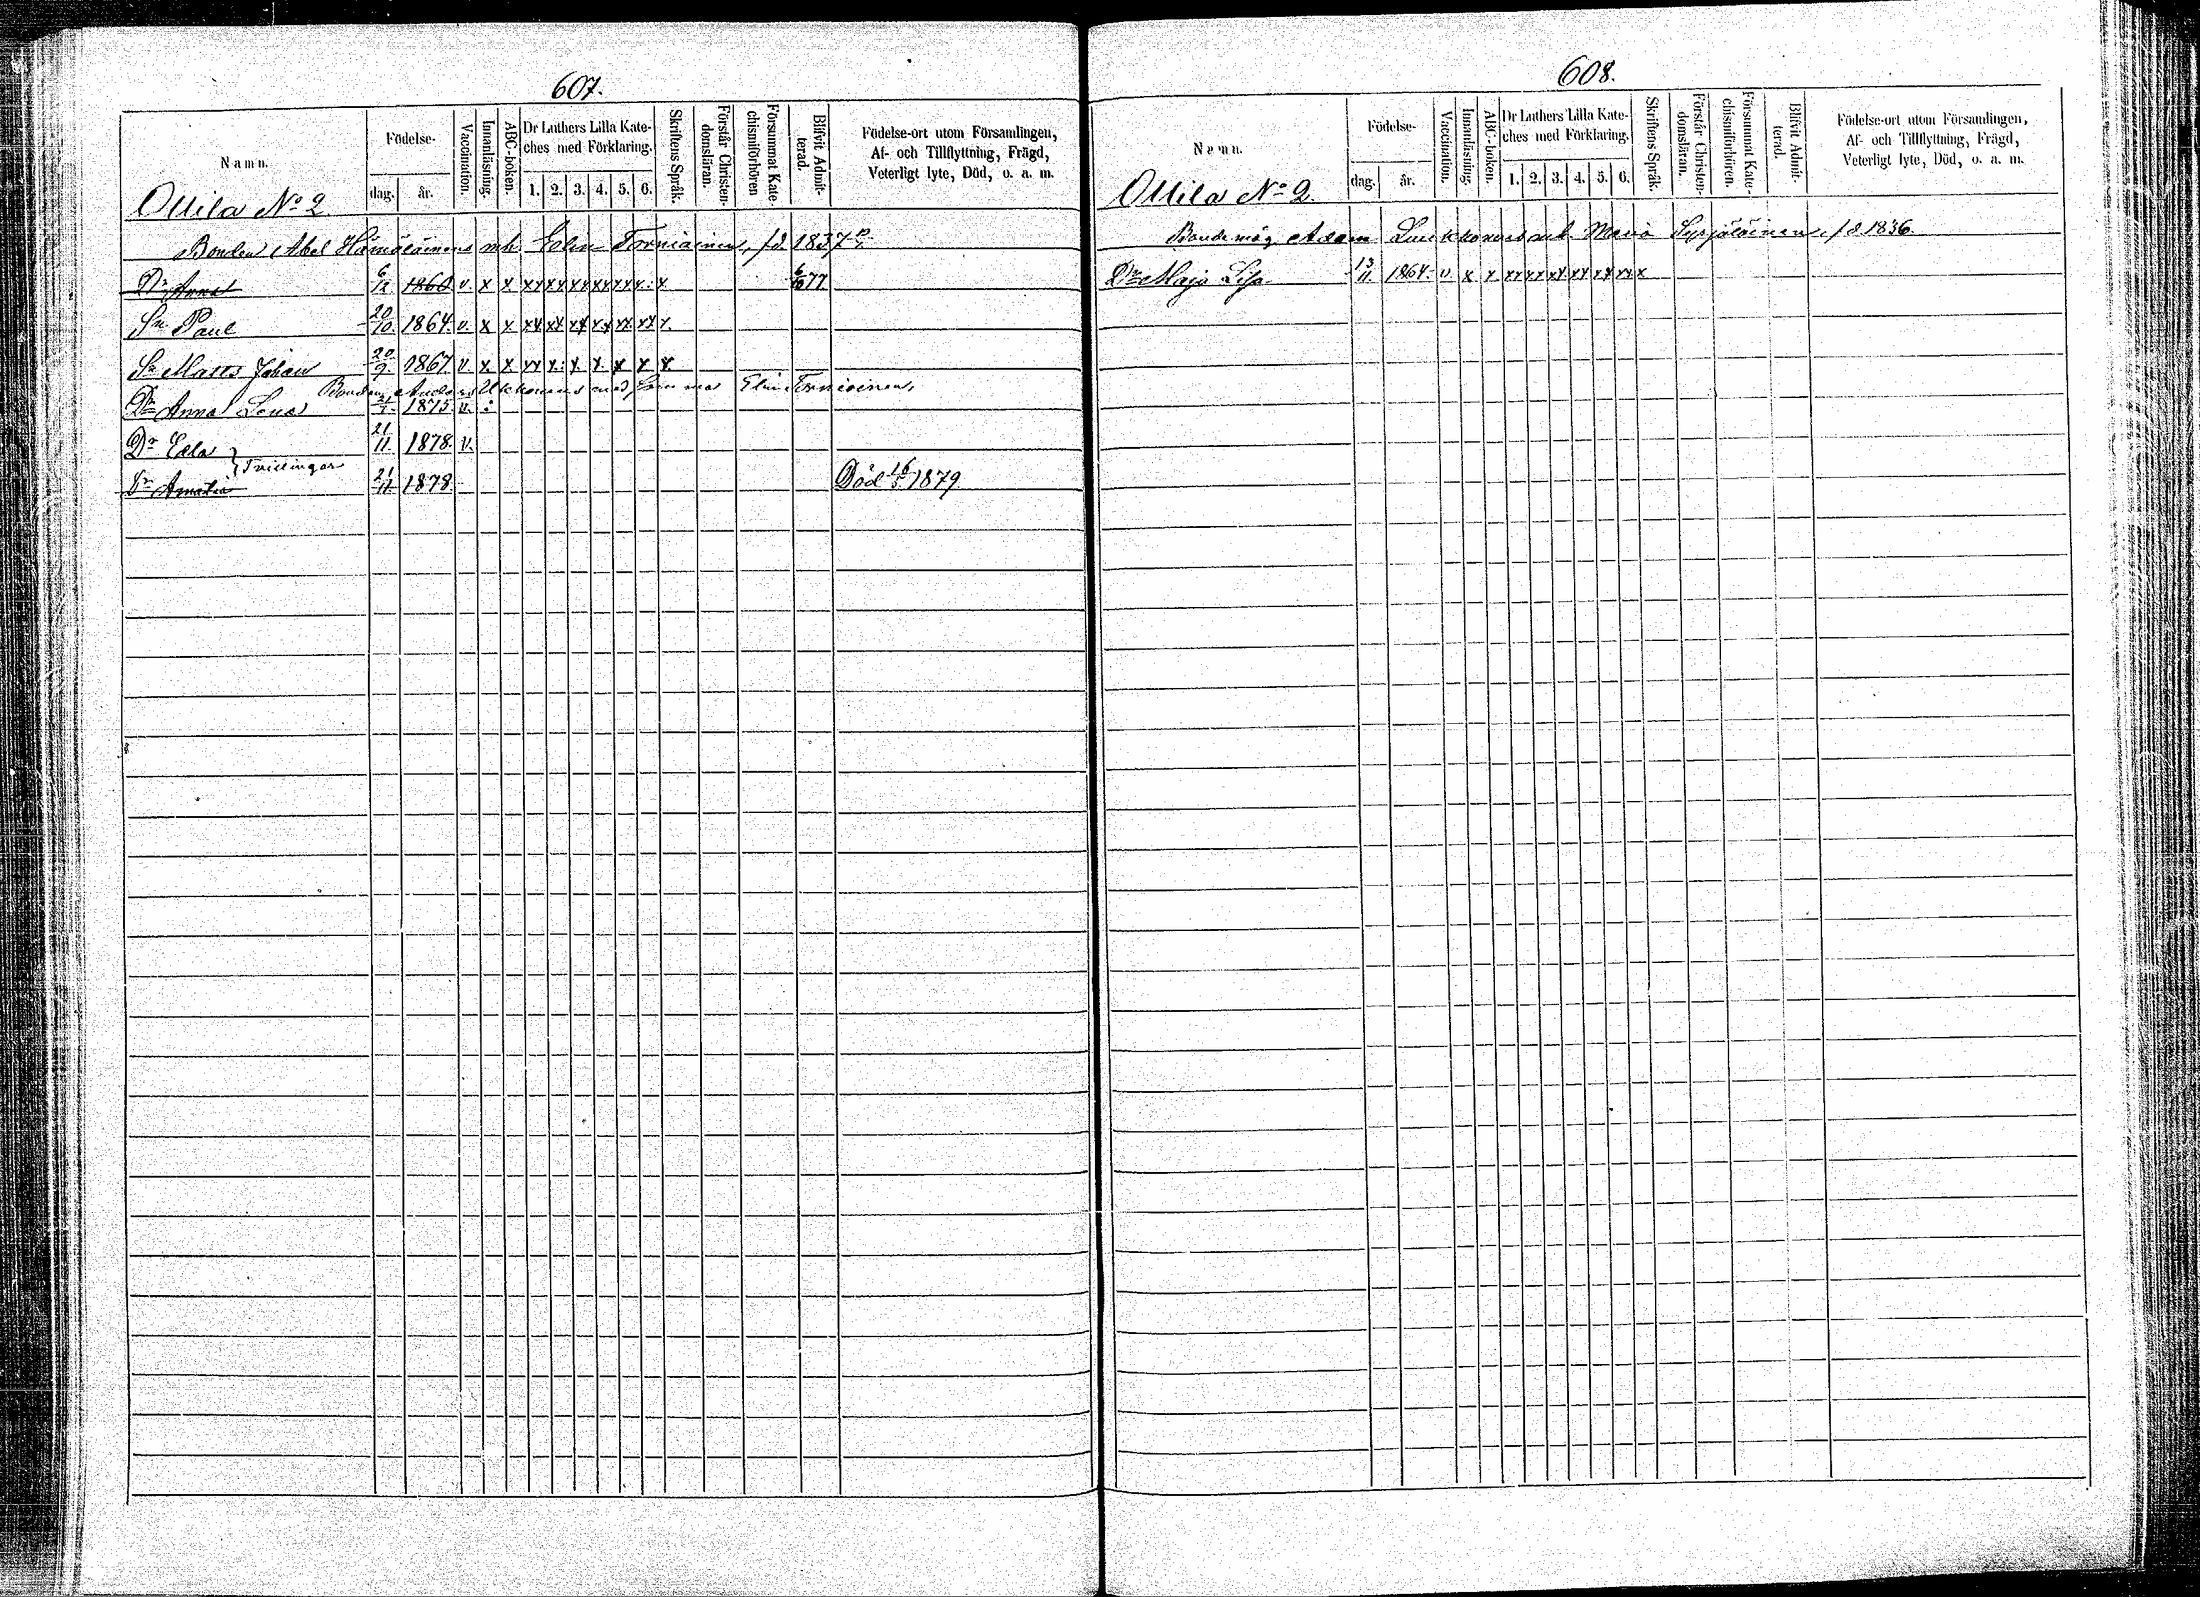 607.
Namn.
Födelse-
dag.
år.
Vaccination.
Innanläsning.
ABC-boken.
Dr Luthers Lilla Kate-
ches med Förklaring.
1. 2. 3. 4. 5. 6.
Skriftens Språk.
Förstår Christen-
domsläran.
Försummat Kate-
chismiförhören
Blifvit Admit-
terad.
Födelse-ort utom Församlingen,
Af- och Tillflyttning, Frägd,
Veterligt lyte, Död, o. a. m.
Ollila No 2
Bonden Abel Hämäläinens m.h. Torniainen, fd. 1837
Dr Anna 6/12 1860 v. x x xx xx xx xx xx x. x 77
Sn Paul 20/10 1864. v. x x xx xx xx xx xx xx x
Sn Matts Johan 20/9 1867. v. x x xx x. x. x. x x x
Bonden Anders Ukkonens med Torniainen,
Dr Anna Lena 1875. v.
Dr Eda 21/11 1878. v.
} Tvillingar
Dr Amalia 21/11 1878. Död 16/5 1879
608.
Namn.
Födelse-
dag.
år.
Vaccination.
Innanläsning.
ABC-boken.
Dr Luthers Lilla Kate-
ches med Förklaring.
1. 2. 3. 4. 5. 6.
Skriftens Språk.
Förstår Christen-
domsläran.
Försummat Kate-
chismiförhören.
Blifvit Admit-
terad.
Födelse-ort utom Församlingen,
Af- och Tillflyttning, Frägd,
Veterligt lyte, Död, o. a. m.
Ollila No 2.
Bondemåg Adam Luukkonens m.h. Maria Syrjäläinen, fd 1836.
Dr Maja Lisa 13/11 1864. v x x xx xx xx xx xx xx x